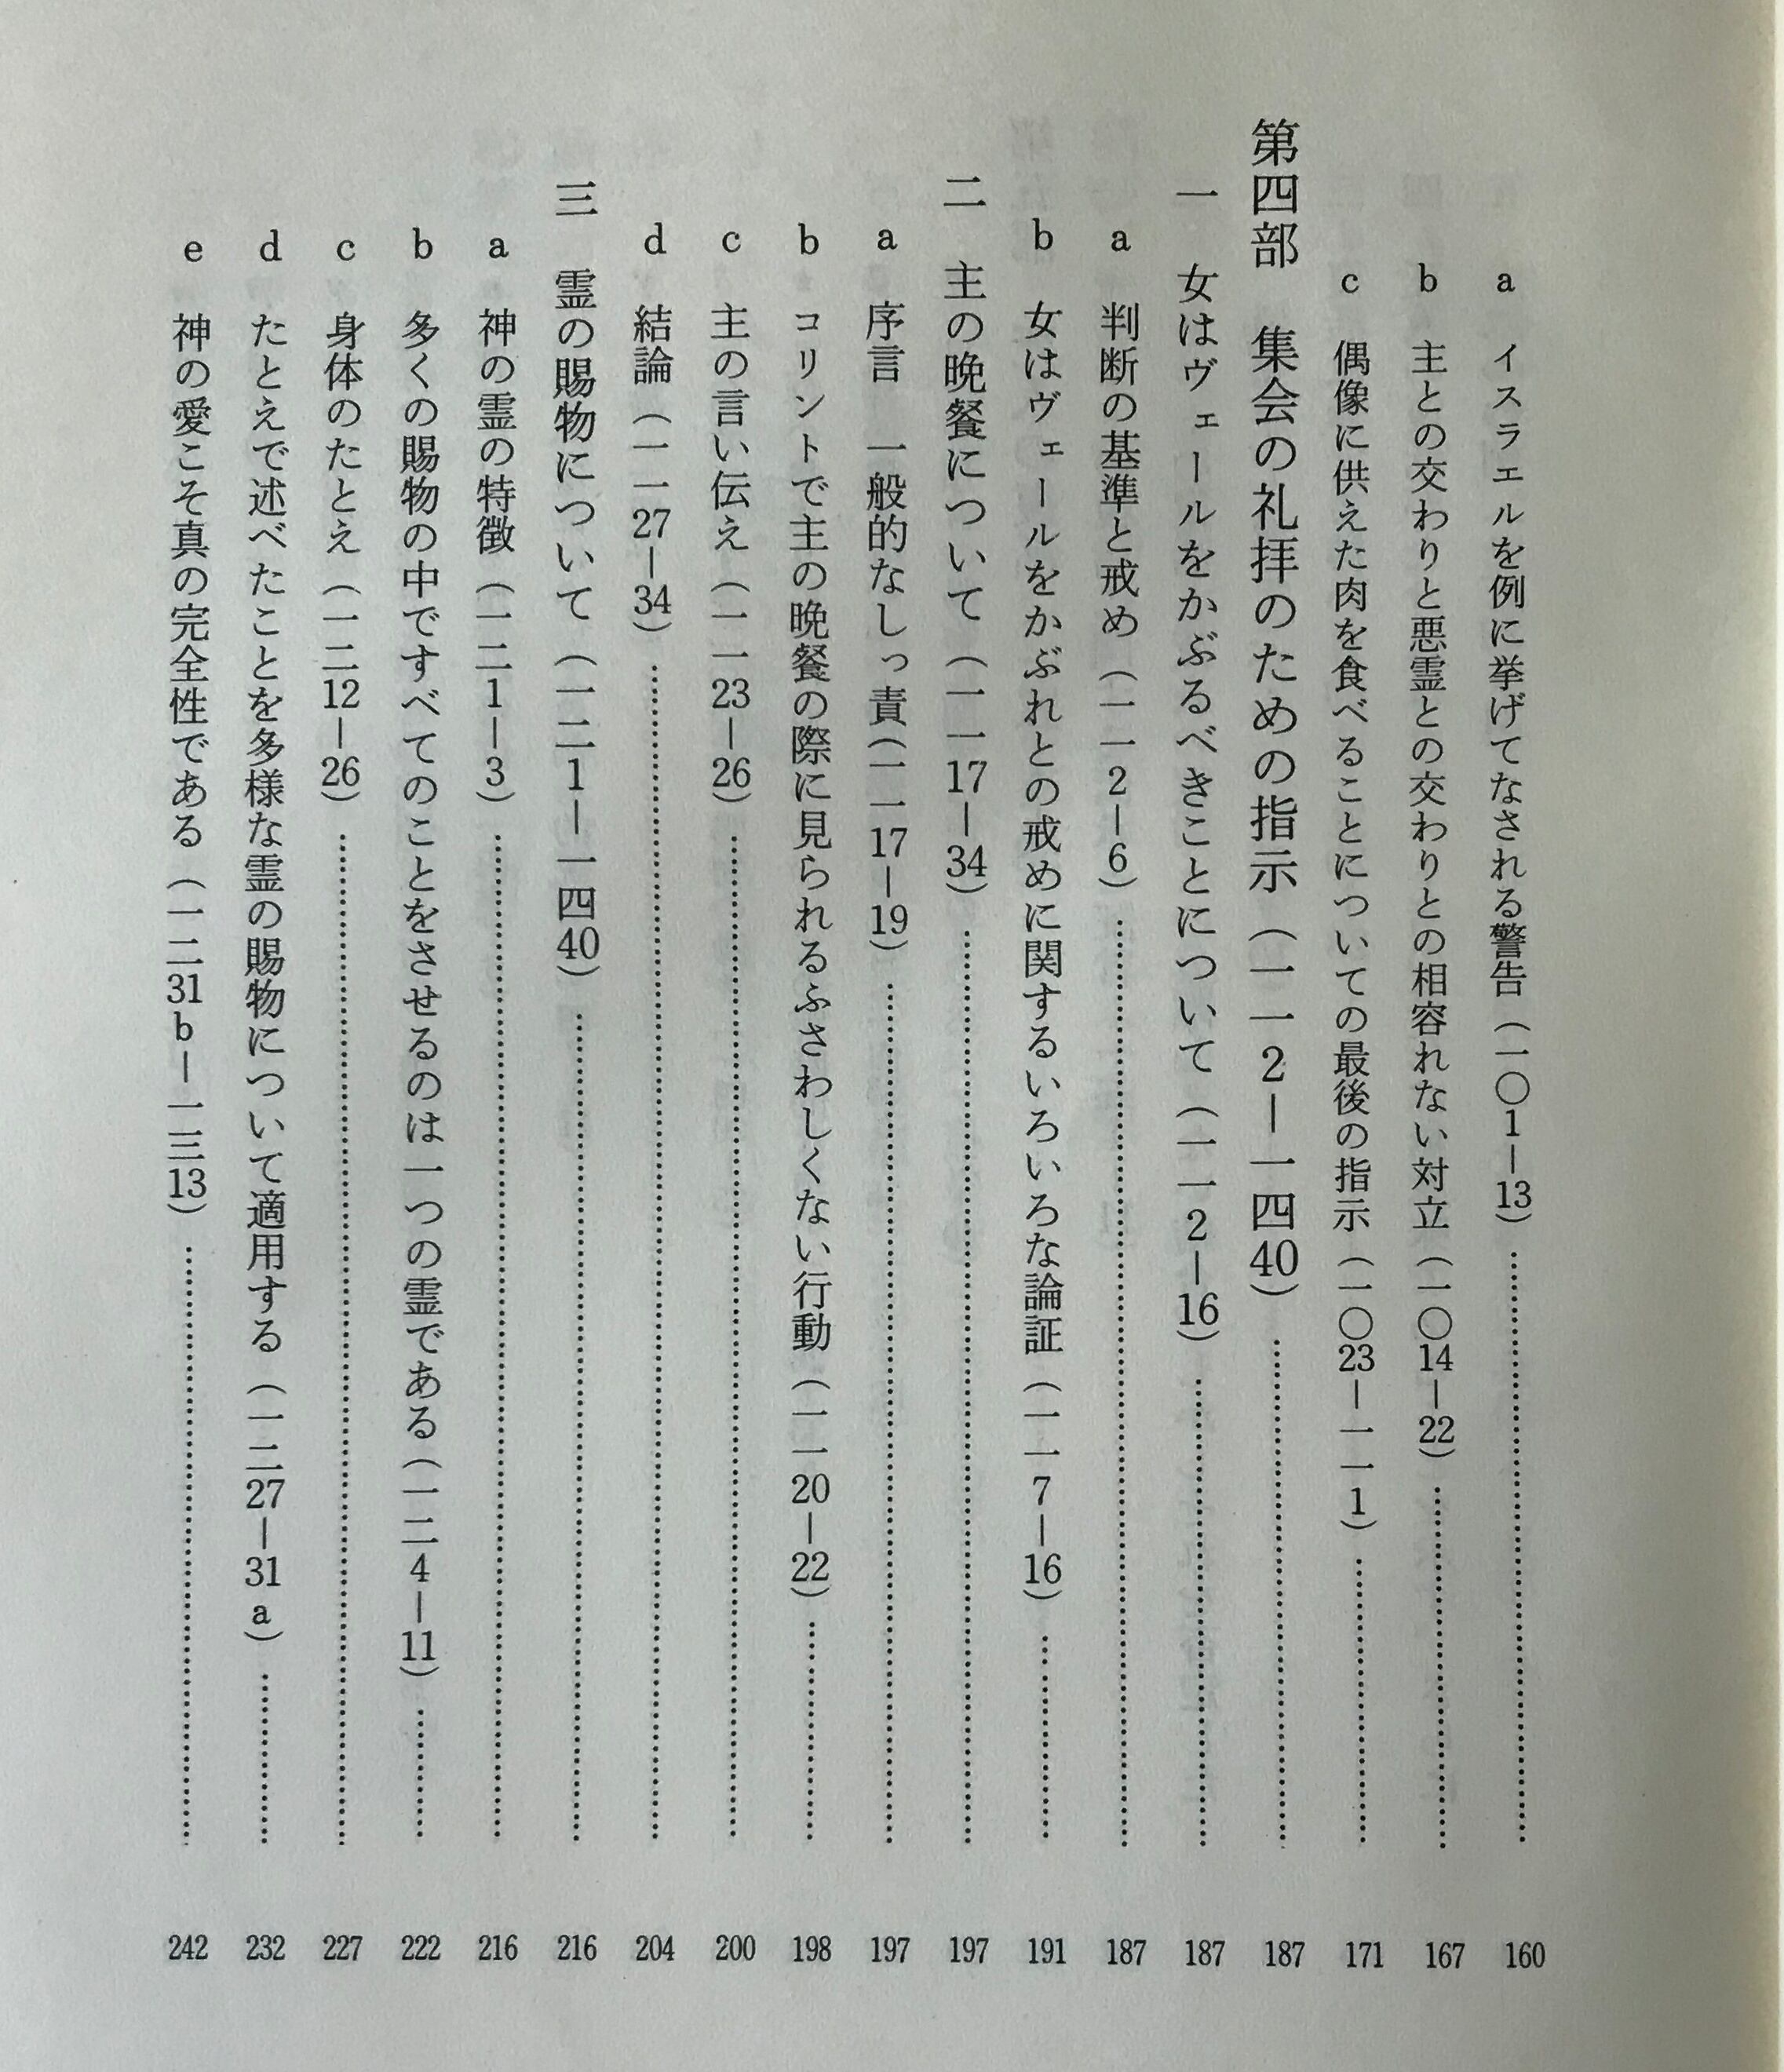 a イスラエルを例に挙げてなされる警告（一〇1―13）……………… 160
b 主との交わりと悪霊との交わりとの相容れない対立（一〇14―22）……………… 167
c 偶像に供えた肉を食べることについての最後の指示（一〇23―一一1）……………… 171
第四部 集会の礼拝のための指示（一一2―一四40）……………… 187
一 女はヴェールをかぶるべきことについて（一一2―16）……………… 187
a 判断の基準と戒め（一一2―6）……………… 187
b 女はヴェールをかぶれとの戒めに関するいろいろな論証（一一7―16）……………… 191
二 主の晩餐について（一一17―34）……………… 197
a 序言 一般的なしっ責（一一17―19）……………… 197
b コリントで主の晩餐の際に見られるふさわしくない行動（一一20―22）……………… 198
c 主の言い伝え（一一23―26）……………… 200
d 結論（一一27―34）……………… 204
三 霊の賜物について（一二1―一四40）……………… 216
a 神の霊の特徴（一二1―3）……………… 216
b 多くの賜物の中ですべてのことをさせるのは一つの霊である（一二4―11）……………… 222
c 身体のたとえ（一二12―26）……………… 227
d たとえで述べたことを多様な霊の賜物について適用する（一二27―31a）……………… 232
e 神の愛こそ真の完全性である（一二31b―一三13）……………… 242